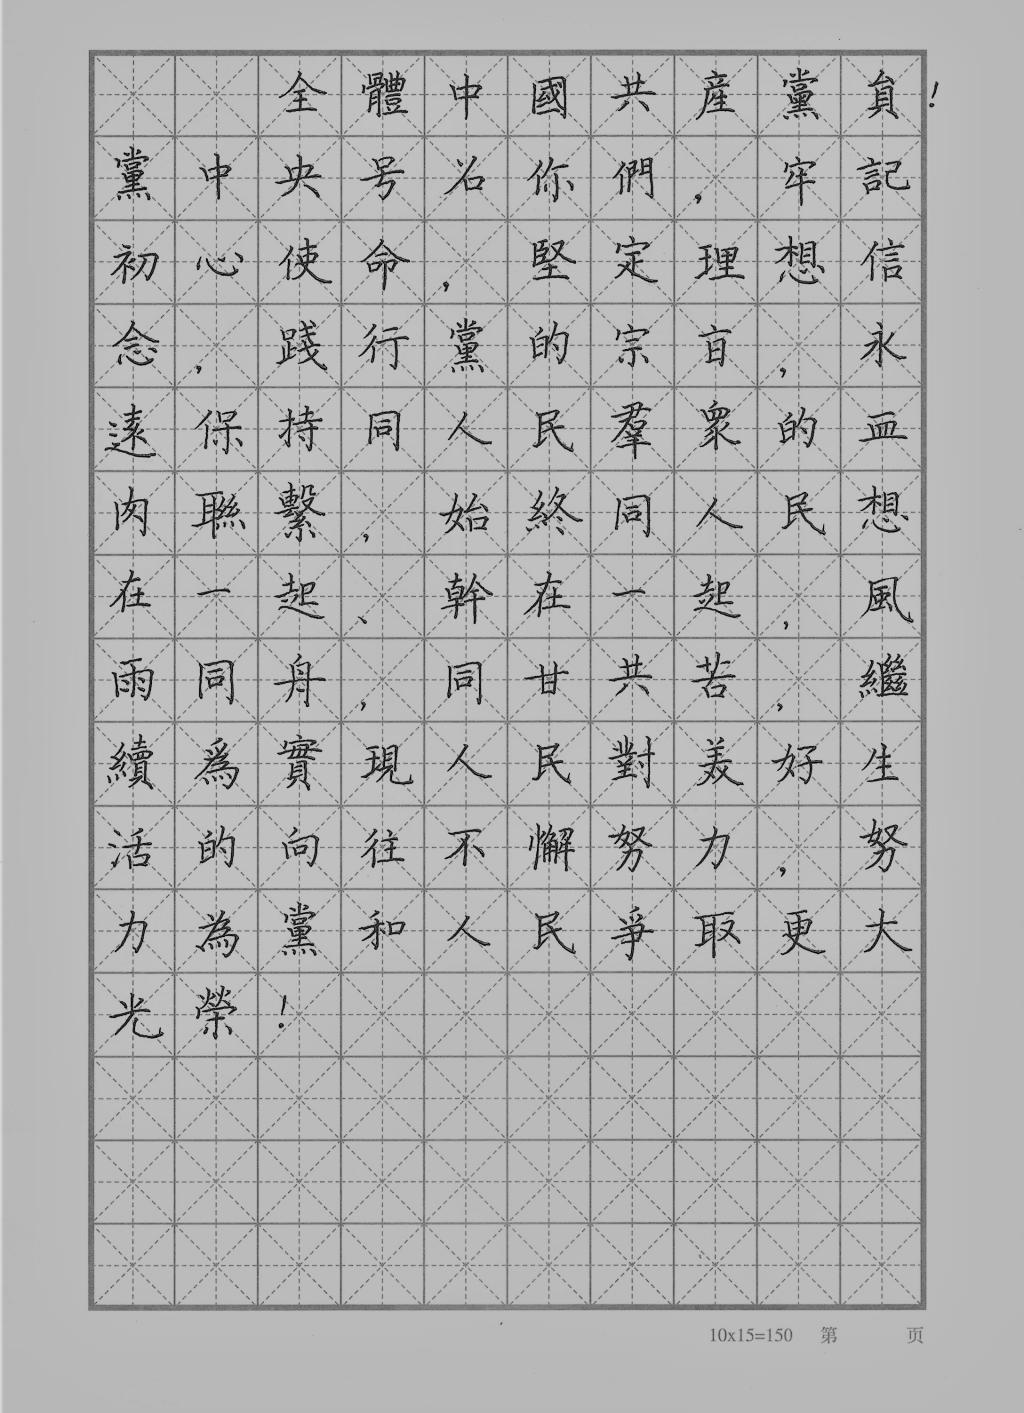 全體中國共産黨員！
黨中央号召你們，牢記
初心使命，堅定理想信
念，踐行黨的宗旨，永
遠保持同人民羣衆的血
肉聯繫，始終同人民想
在一起、幹在一起，風
雨同舟，同甘共苦，繼
續爲實現人民對美好生
活的向往不懈努力，努
力為黨和人民爭取更大
光榮！
10x15=150 第 页